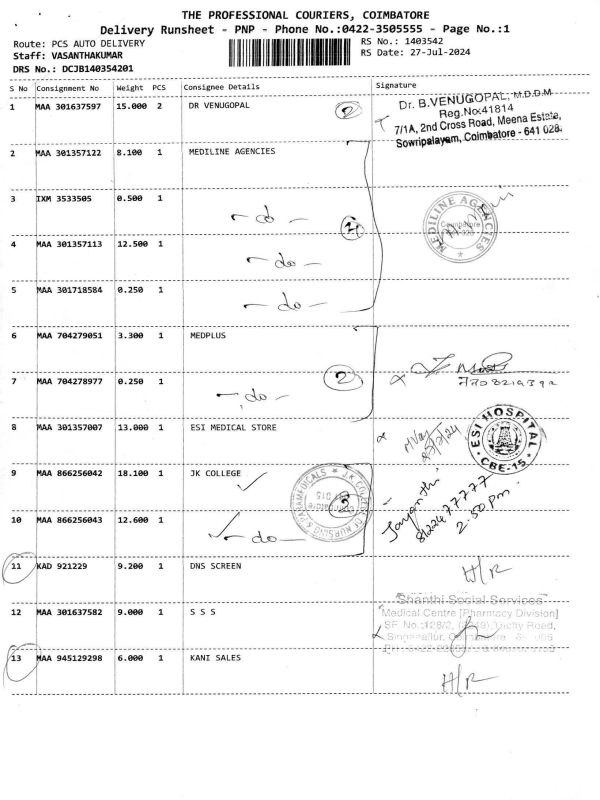 THE PROFESSIONAL COURIERS, COIMBATORE
Delivery Runsheet - PNP - Phone No.:0422-3505555 - Page No.:1
Route: PCS AUTO DELIVERY
RS No.: 1403542
Staff: VASANTHAKUMAR
RS Date: 27-Jul-2024
DRS No.: DCJB140354201
S No Consignment No Weight PCS Consignee Details Signature
1 MAA 301637597 15.000 2 DR VENUGOPAL 2
Dr. B.VENUGOPAL, M.D.D.M
Reg.No:41814
7/1A, 2nd Cross Road, Meena Estate,
Sowripalayam, Coimbatore - 641 028.
2 MAA 301357122 8.100 1 MEDILINE AGENCIES
3 IXM 3533505 0.500 1 - do -
MEDILINE AGENCIES
Coimbatore
4 MAA 301357113 12.500 1 - do -
5 MAA 301718584 0.250 1 - do -
6 MAA 704279051 3.300 1 MEDPLUS
7 MAA 704278977 0.250 1 - do - 2
8 MAA 301357007 13.000 1 ESI MEDICAL STORE
ESI HOSPITAL
CBE-15
9 MAA 866256042 18.100 1 JK COLLEGE
J.K. COLLEGE OF NURSING & PARAMEDICALS
2
Jayanthi
8122477777
2.50 pm
10 MAA 866256043 12.600 1 - do -
11 KAD 921229 9.200 1 DNS SCREEN H/R
12 MAA 301637582 9.000 1 S S S
Shanthi Social Services
Medical Centre [Pharmacy Division]
SF No.:128/2, Trichy Road,
Singanallur, Coimbatore
13 MAA 945129298 6.000 1 KANI SALES H/R